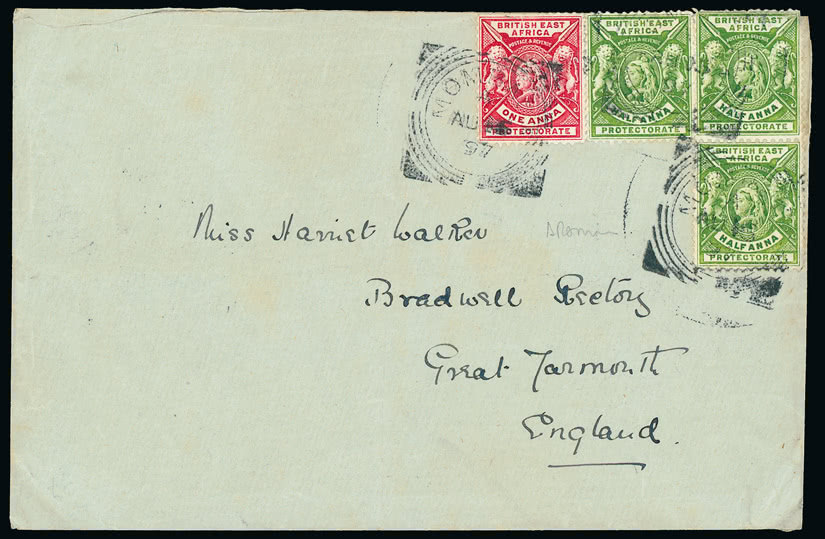 BRITISH EAST
AFRICA
POSTAGE & REVENUE
ONE ANNA
PROTECTORATE
BRITISH EAST
AFRICA
POSTAGE & REVENUE
HALF ANNA
PROTECTORATE
BRITISH EAST
AFRICA
POSTAGE & REVENUE
HALF ANNA
PROTECTORATE
BRITISH EAST
AFRICA
POSTAGE & REVENUE
HALF ANNA
PROTECTORATE
MOM
AU
97
Miss Harriet Walker
Bradwell Rectory
Great Yarmouth
England.